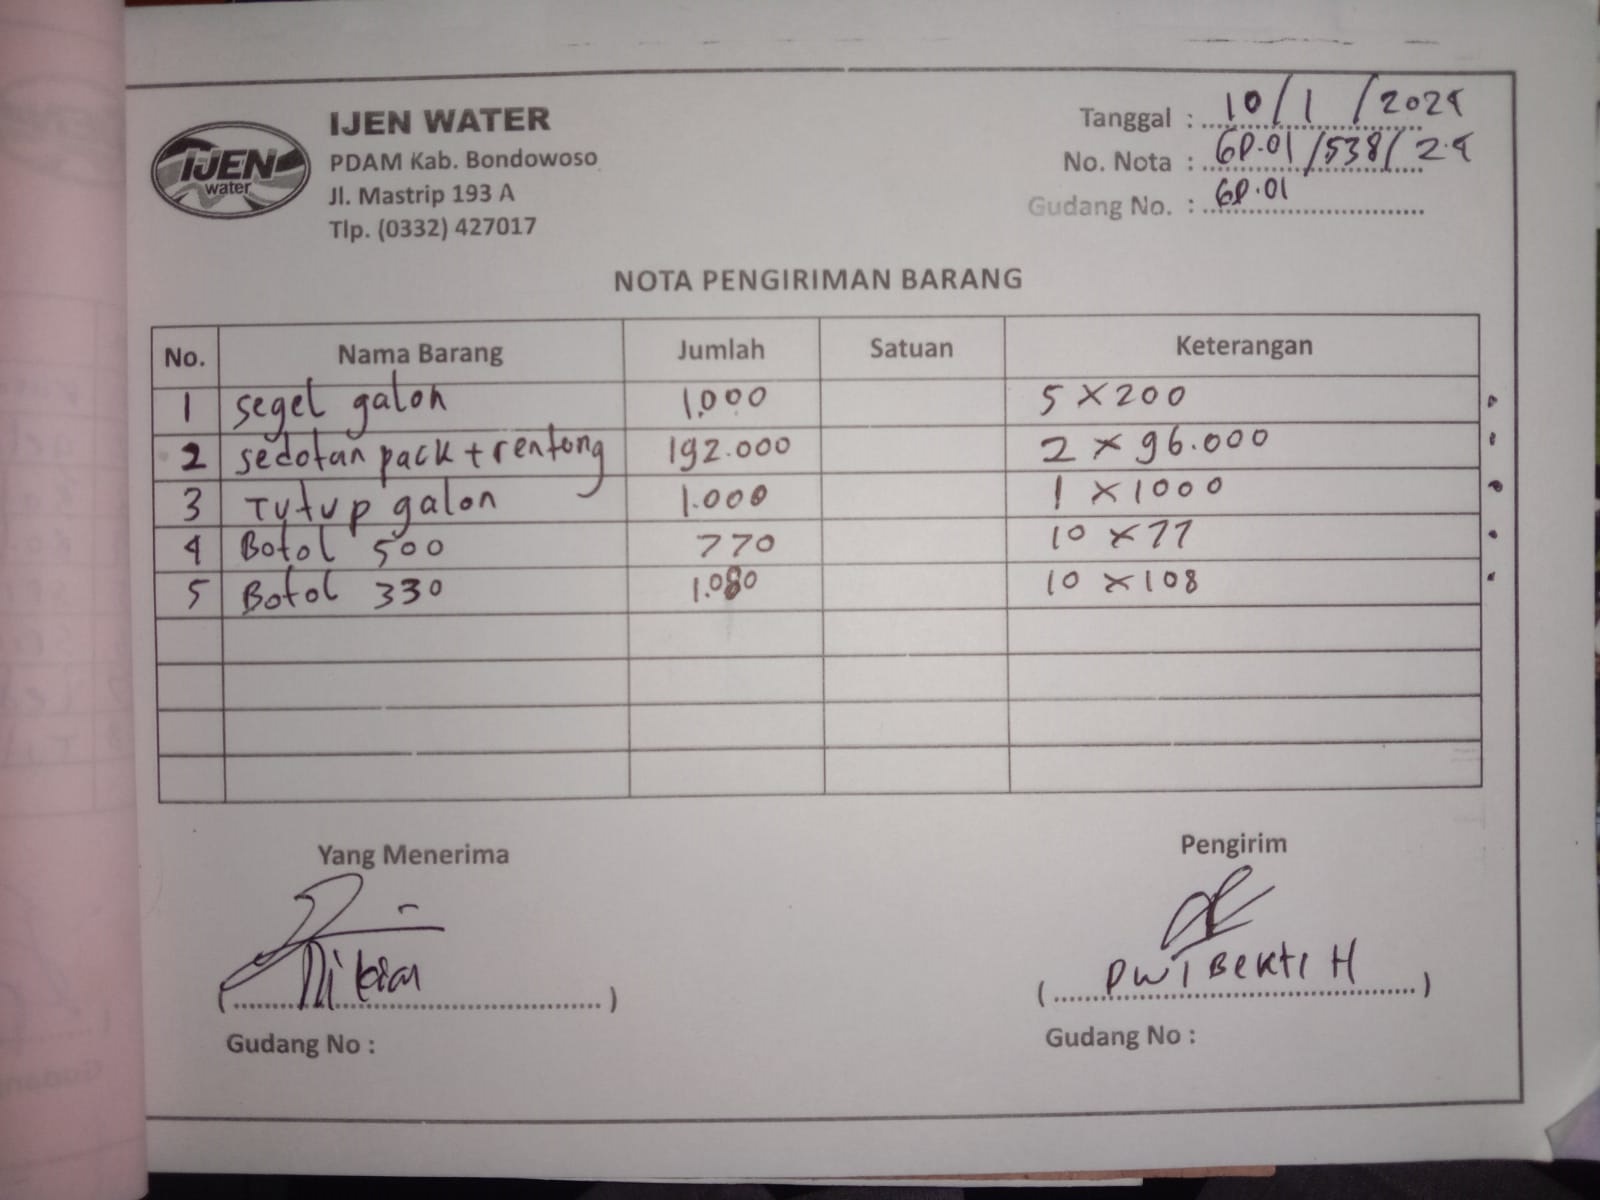 IJEN
water
IJEN WATER
PDAM Kab. Bondowoso
Jl. Mastrip 193 A
Tlp. (0332) 427017
Tanggal : 10/1/2024
No. Nota : GD.01/538/2.4
Gudang No. : GD.01
NOTA PENGIRIMAN BARANG
No. Nama Barang Jumlah Satuan Keterangan
1 segel galon 1.000 5 X 200
2 sedotan pack + renteng 192.000 2 X 96.000
3 Tutup galon 1.000 1 X 1000
4 Botol 500 770 10 X 77
5 Botol 330 1.080 10 X 108
Yang Menerima Pengirim
(....................) (DWI BEKTI H)
Gudang No : Gudang No :